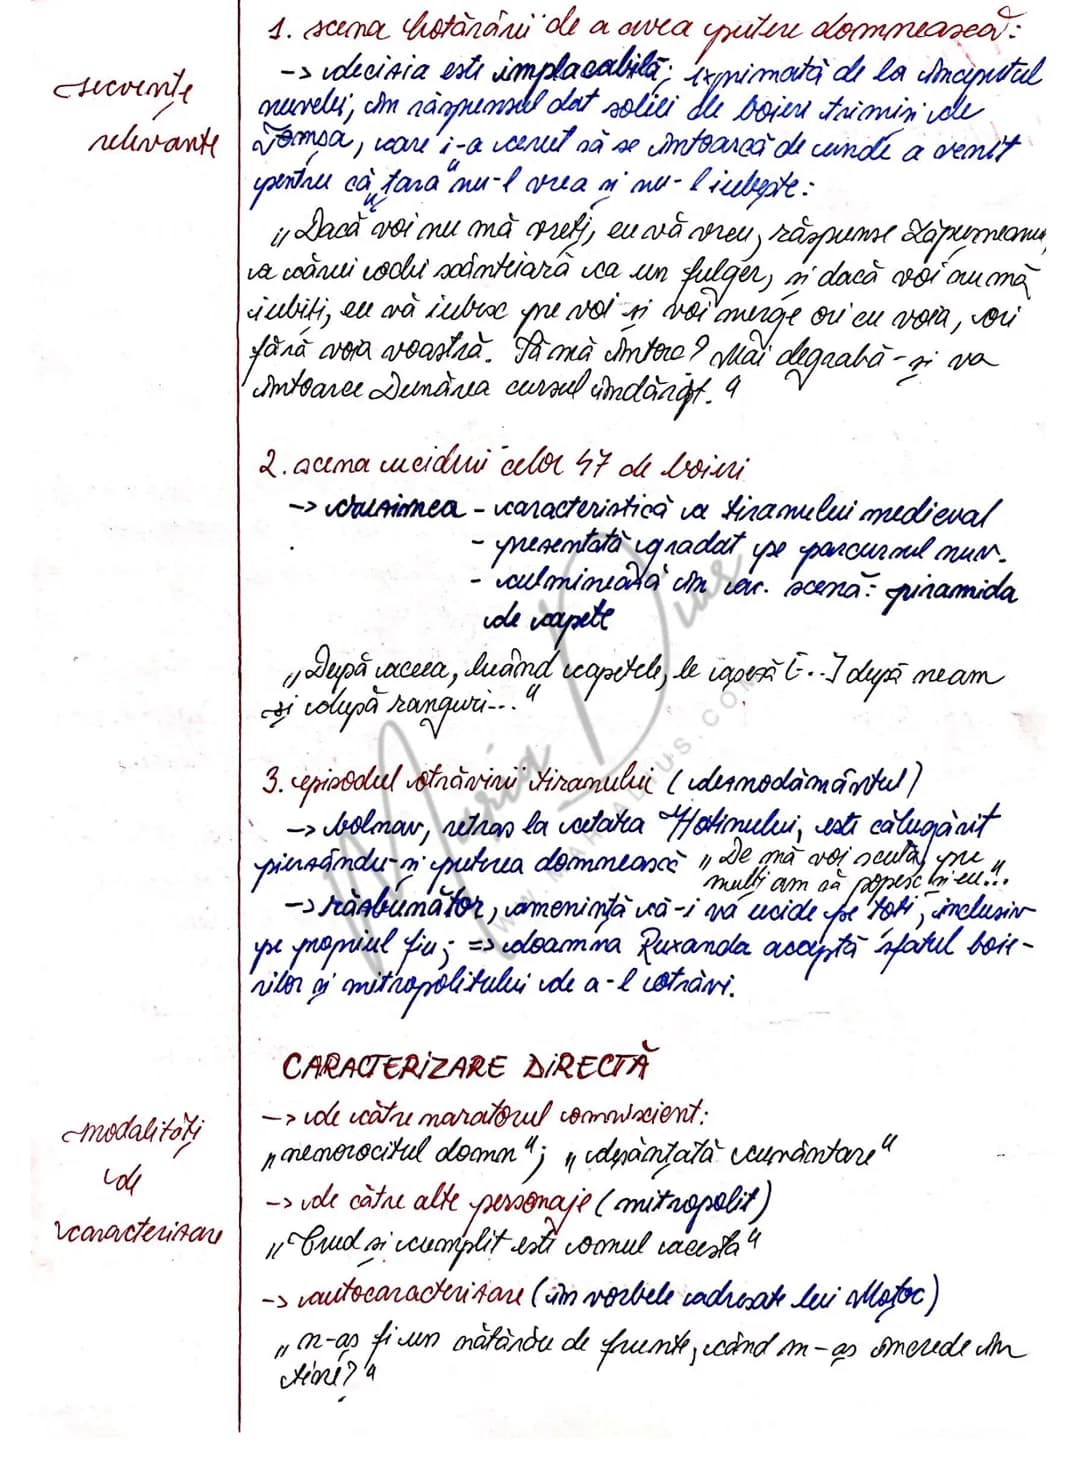 secvențe
relevante
1. scena hotărârii de a avea putere domnească:
-> decizia este implacabilă; exprimată de la începutul
nuvelei, în răspunsul dat soliei de boieri trimiși de
Tomșa, care i-a cerut să se întoarcă de unde a venit
pentru că „țara" nu-l vrea și nu-l iubește:
„Dacă voi nu mă vreți, eu vă vreu, răspunse Lăpușneanu,
a cărui ochi scânteiară ca un fulger, și dacă voi nu mă
iubiți, eu vă iubesc pre voi și voi merge ori cu voia, ori
fără voia voastră. Să mă întorc? Mai degrabă-și va
întoarce Dunărea cursul îndărăt."
2. scena uciderii celor 47 de boieri
-> cruzimea - caracteristică a tiranului medieval
- prezentată gradat pe parcursul nuv.
- culminează în ac. scenă: piramida
de capete
„După aceea, luând capetele, le așeză [...] după neam
și după ranguri..."
3. episodul otrăvirii tiranului (deznodământul)
-> bolnav, retras la cetatea Hotinului, este călugărit
pierzându-și puterea domnească „De mă voi scula, pre
mulți am să popesc și eu..."
-> răzbunător, amenință că-i va ucide pe toți, inclusiv
pe propriul fiu; => doamna Ruxanda acceptă sfatul boie-
rilor și mitropolitului de a-l otrăvi.
modalități
de
caracterizare
CARACTERIZARE DIRECTĂ
-> de către naratorul omniscient:
„nenorocitul domn"; „deșănțată cuvântare"
-> de către alte personaje (mitropolit)
„Crud și cumplit este omul acesta"
-> autocaracterizare (în vorbele adresate lui Moțoc)
„n-aș fi un nătărău de frunte, când m-aș încrede în
tine?"
Maria Dus
WWW.MARIADUS.COM